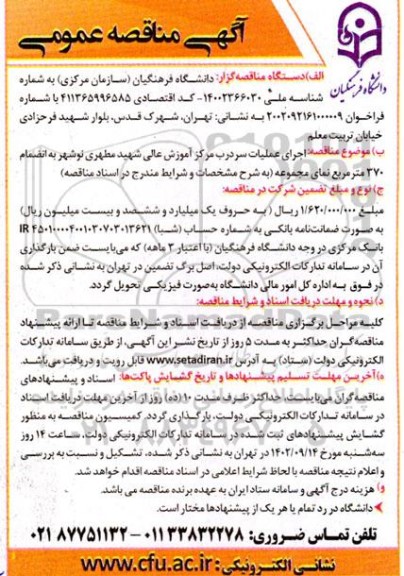 آگهی مناقصه عمومی
دانشگاه فرهنگیان
الف)دستگاه مناقصه‌گزار: دانشگاه فرهنگیان (سازمان مرکزی) به شماره
شناسه ملی ۱۴۰۰۲۳۶۶۰۳۰ - کد اقتصادی ۴۱۱۳۶۵۹۹۶۵۸۵ با شماره
فراخوان ۲۰۰۲۰۹۲۱۶۱۰۰۰۰۰۹ به نشانی: تهران، شهرک قدس، بلوار شهید فرحزادی
خیابان تربیت معلم
ب) موضوع مناقصه: اجرای عملیات سردرب مرکز آموزش عالی شهید مطهری نوشهر به انضمام
۳۷۰ مترمربع نمای مجموعه (به شرح مشخصات و شرایط مندرج در اسناد مناقصه)
ج) نوع و مبلغ تضمین شرکت در مناقصه:
مبلغ ۱/۶۲۰/۰۰۰/۰۰۰ ریال (به حروف یک میلیارد و ششصد و بیست میلیون ریال)
به صورت ضمانت‌نامه بانکی به شماره حساب (شبا)
بانک مرکزی در وجه دانشگاه فرهنگیان (با اعتبار ۳ ماهه) که می‌بایست ضمن بارگذاری
آن در سامانه تدارکات الکترونیکی دولت، اصل برگ تضمین در تهران به نشانی ذکر شده
در فوق به اداره کل امور مالی دانشگاه به‌صورت فیزیکی تحویل گردد.
د) نحوه و مهلت دریافت اسناد و شرایط مناقصه:
کلیه مراحل برگزاری مناقصه از دریافت اسناد و شرایط مناقصه تا ارائه پیشنهاد
مناقصه‌گران حداکثر به مدت ۵ روز از تاریخ نشر این آگهی، از طریق سامانه تدارکات
الکترونیکی دولت (ستاد) به آدرس www.setadiran.ir قابل رویت و دریافت می‌باشد.
ه) آخرین مهلت تسلیم پیشنهادها و تاریخ گشایش پاکت‌ها: اسناد و پیشنهادهای
مناقصه‌گران می‌بایست، حداکثر ظرف مدت ۱۰ (ده) روز از آخرین مهلت دریافت اسناد
در سامانه تدارکات الکترونیکی دولت، بارگذاری گردد. کمیسیون مناقصه به منظور
گشایش پیشنهادهای ثبت شده در سامانه تدارکات الکترونیکی دولت، ساعت ۱۴ روز
سه‌شنبه مورخ ۱۴۰۲/۰۹/۱۴ در تهران به نشانی ذکر شده، تشکیل و نسبت به بررسی
و اعلام نتیجه مناقصه با لحاظ شرایط اعلامی در اسناد مناقصه اقدام خواهد شد.
و) هزینه درج آگهی و سامانه ستاد ایران به عهده برنده مناقصه می باشد.
دانشگاه در رد تمام یا هر یک از پیشنهادها مختار است.
تلفن تماس ضروری: ۰۱۱۳۳۸۳۲۲۷۸ - ۰۲۱۸۷۷۵۱۱۳۲
نشانی الکترونیکی: www.cfu.ac.ir